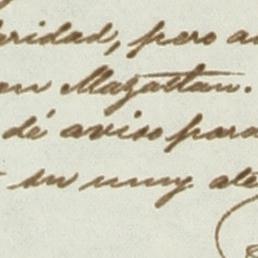 eridad, pero a
en Mazatlan.
dé aviso para
su muy ate